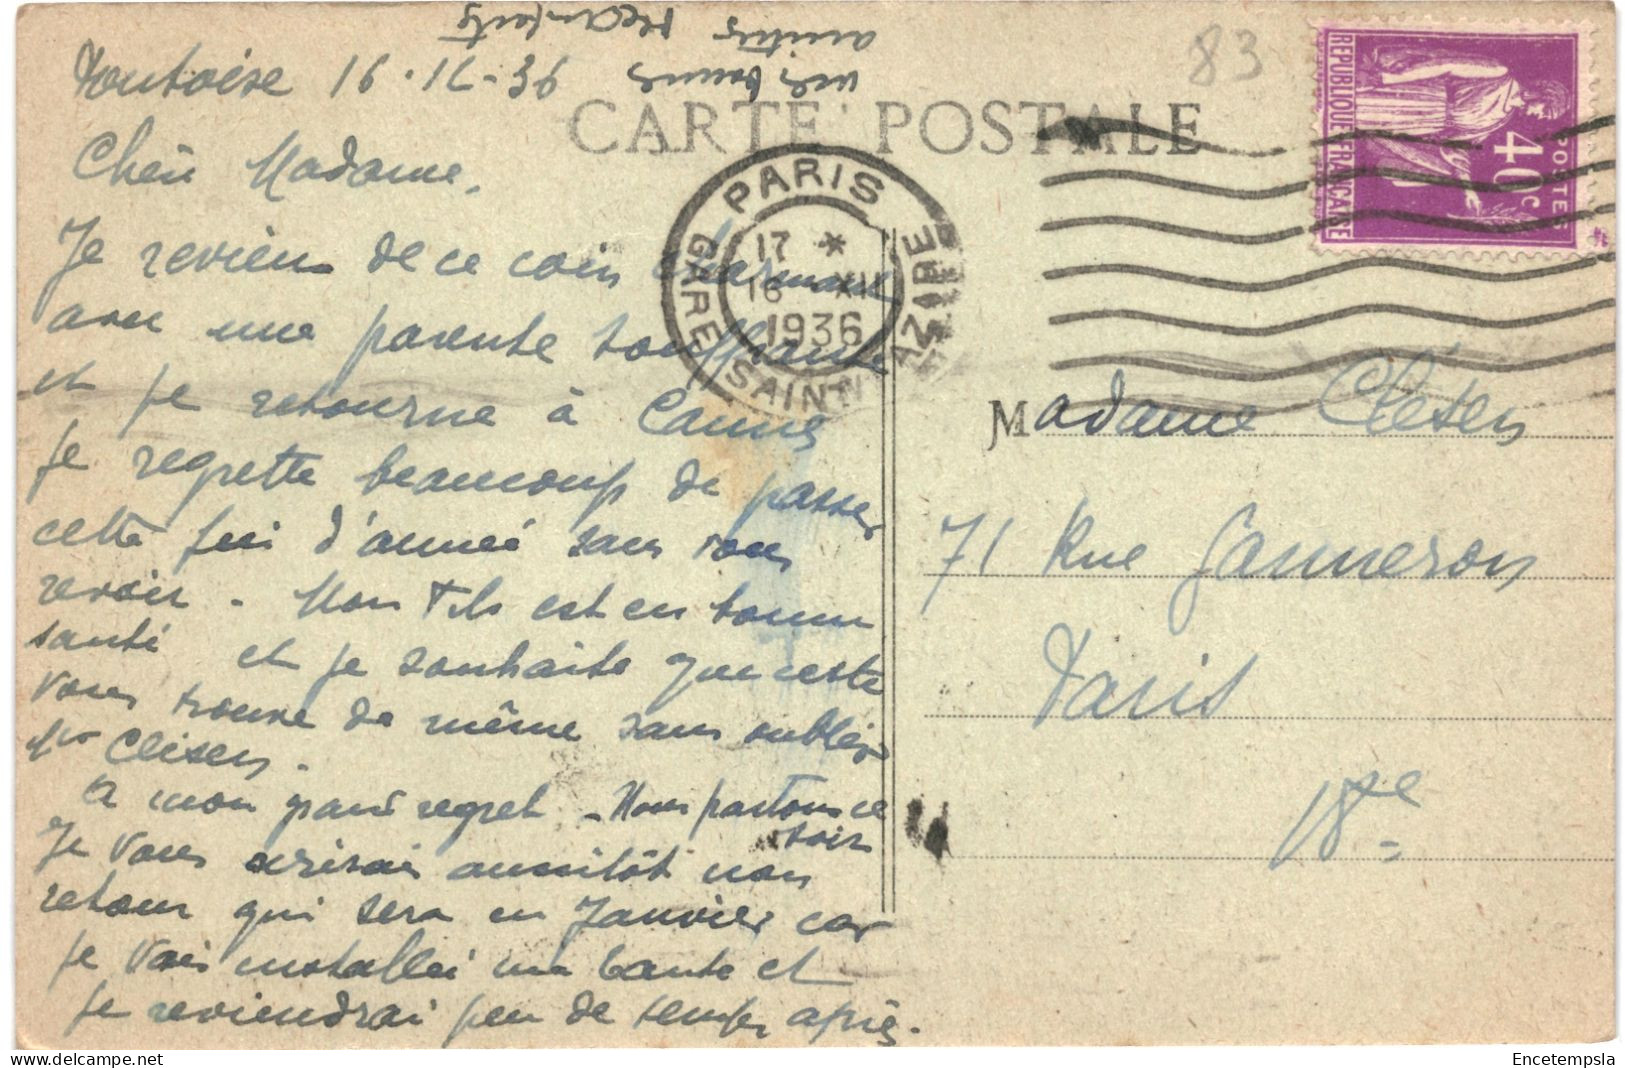 Pontoise 16-12-36
CARTE POSTALE
83
RÉPUBLIQUE FRANÇAISE
POSTES
40c
PARIS
GARE SAINT LAZARE
17 *
16 - XII
1936
Chère Madame,
Je reviens de ce coin charmant
avec une parente souffrante
et je retourne à Cannes
Je regrette beaucoup de passer
cette fin d'année sans vous
revoir. Mon fils est en bonne
santé et je souhaite que cette
vous trouve de même sans oublier
Mr Clisen.
A mon grand regret. Nous partons ce
soir
Je vous aussitôt mon
retour qui sera en Janvier car
je vais installer ma tante et
je reviendrai peu de temps après.
mes bonnes
amitiés
Madame Clesen
71 Rue Ganneron
Paris
18e
delcampe.net
Encetempsla